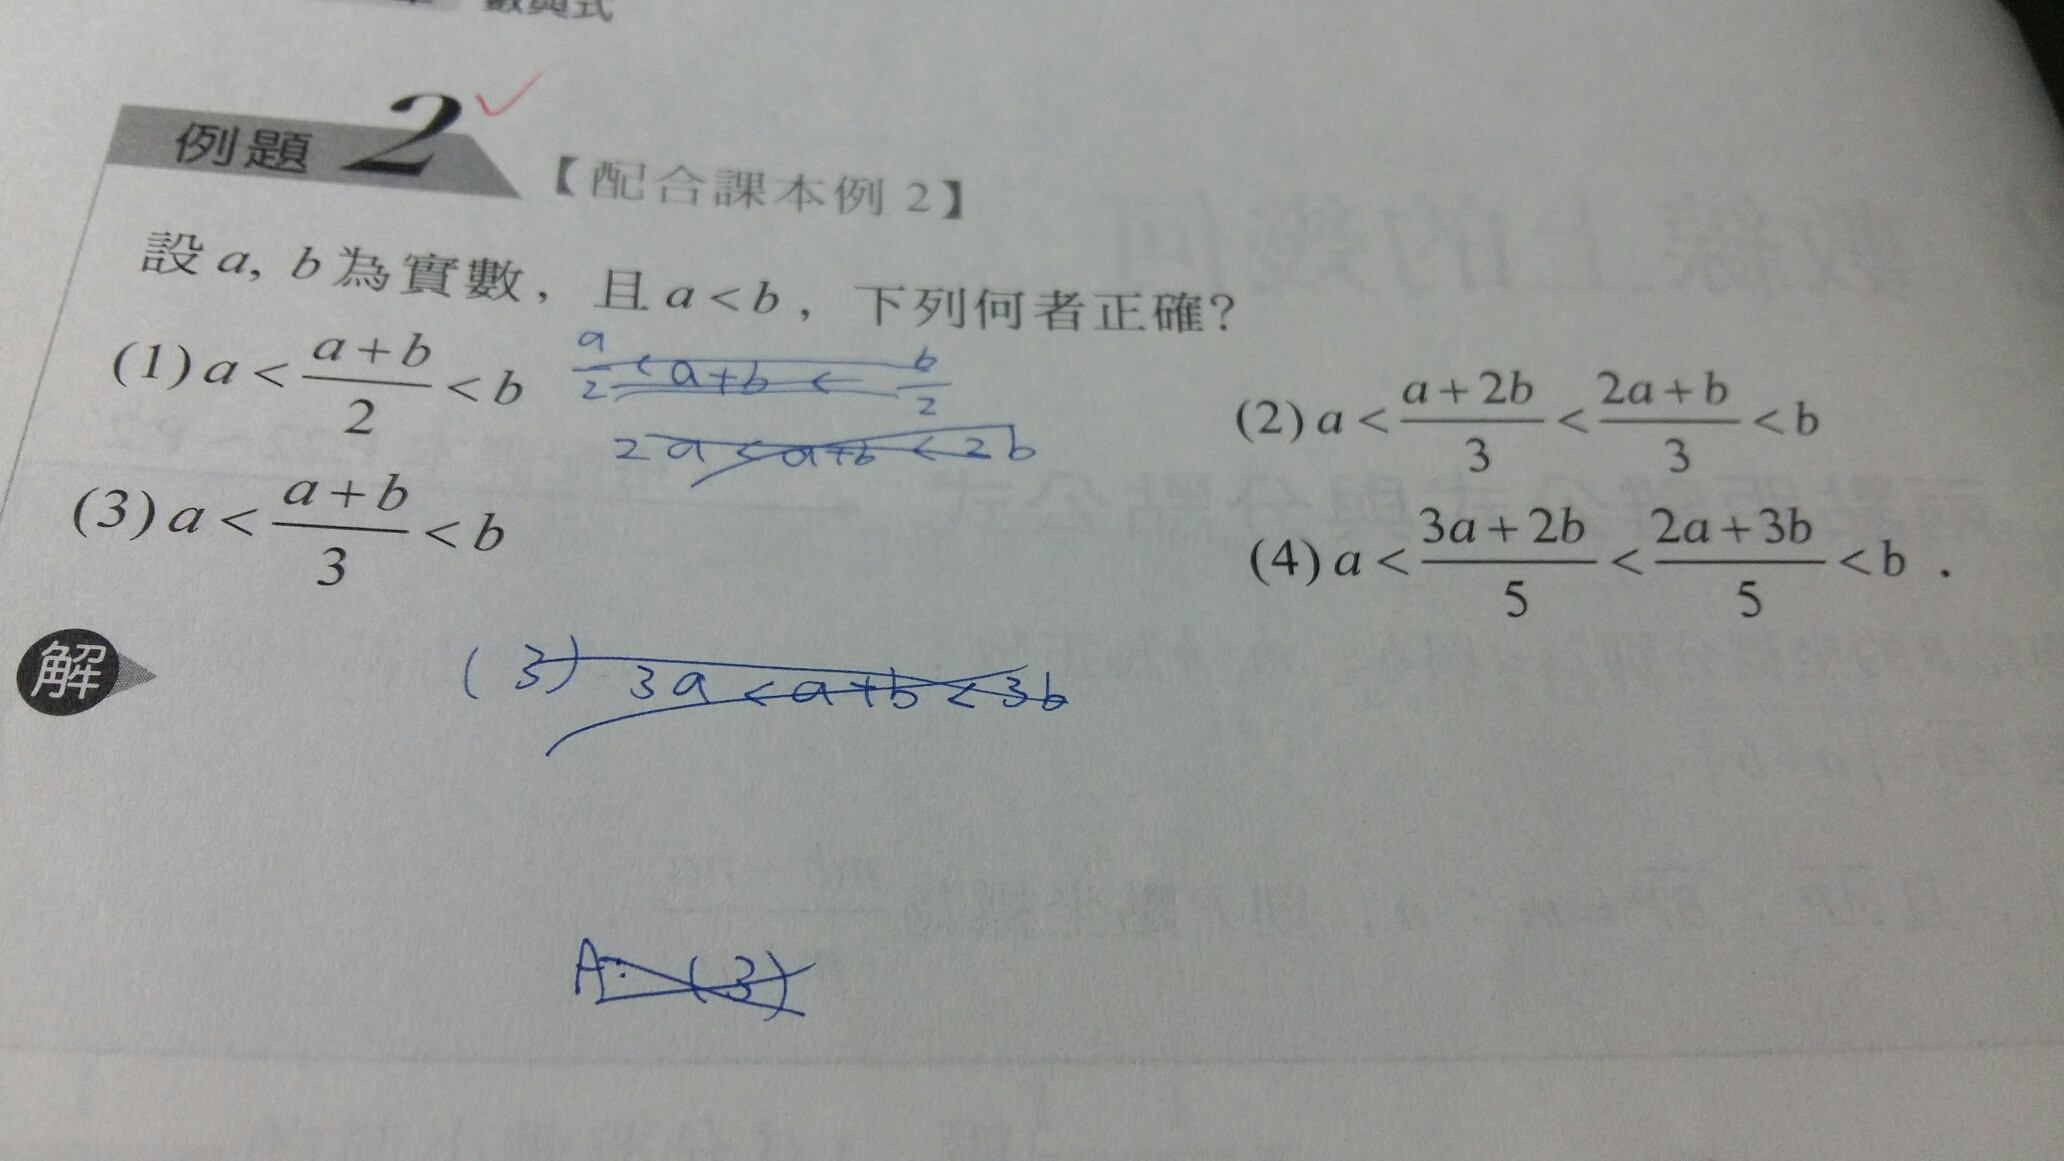 數與式
例題2
【配合課本例2】
設a, b為實數，且a<b，下列何者正確?
(1) a < \frac{a+b}{2} < b
\frac{a}{2} < a+b < \frac{b}{2}
2a < a+b < 2b
(2) a < \frac{a+2b}{3} < \frac{2a+b}{3} < b
(3) a < \frac{a+b}{3} < b
(4) a < \frac{3a+2b}{5} < \frac{2a+3b}{5} < b .
解
(3) 3a < a+b < 3b
A: (3)